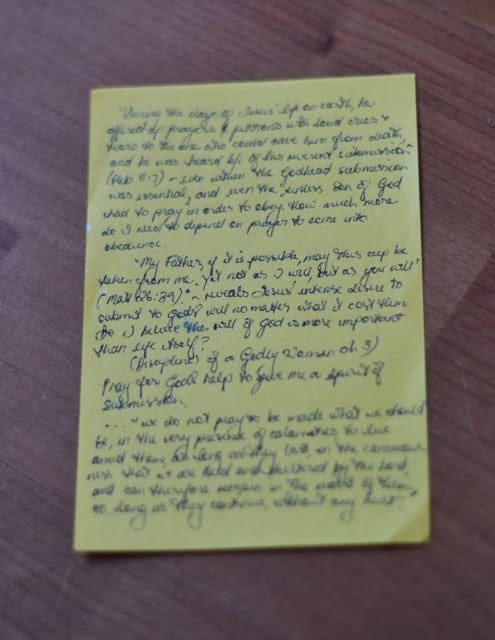 "During the days of Jesus' life on earth, he
offered up prayers & petitions with loud cries &
tears to the one who could save him from death,
and he was heard b/c of his reverent submission."
(Heb 5:7) - even within the Godhead submission
was essential, and even the sinless Son of God
had to pray in order to obey. How much more
do I need to depend on prayer to come into
obedience.
"My Father, if it is possible, may this cup be
taken from me. Yet not as I will, but as you will"
(Matt 26:39)." - reveals Jesus' intense desire to
submit to God's will no matter what it cost them.
Do I believe the will of God is more important
than life itself?
(Disciplines of a Godly Woman ch 3)
Pray for God's help to give me a spirit of
submission.
... "we do not pray to be made what we should
be, in the very presence of calamities to live
amid them, as long as they last, in the conscious-
ness that we are held and sheltered by the Lord,
and can therefore remain in the midst of them,
so long as they continue, without any hurt."